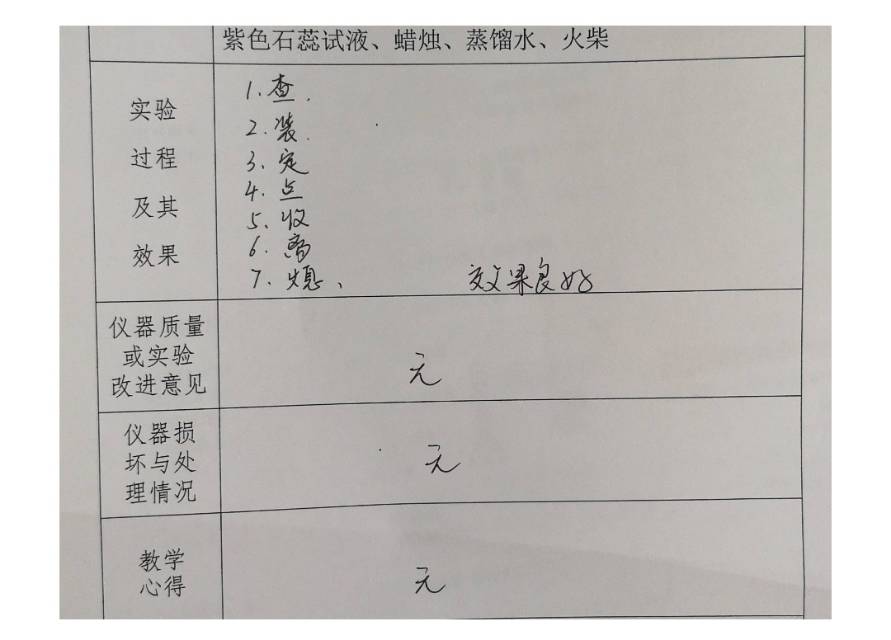 紫色石蕊试液、蜡烛、蒸馏水、火柴
实验
过程
及其
效果
1.查.
2.装.
3.定
4.点
5.收
6.离
7.熄、 效果良好
仪器质量
或实验
改进意见
无
仪器损
坏与处
理情况
无
教学
心得
无